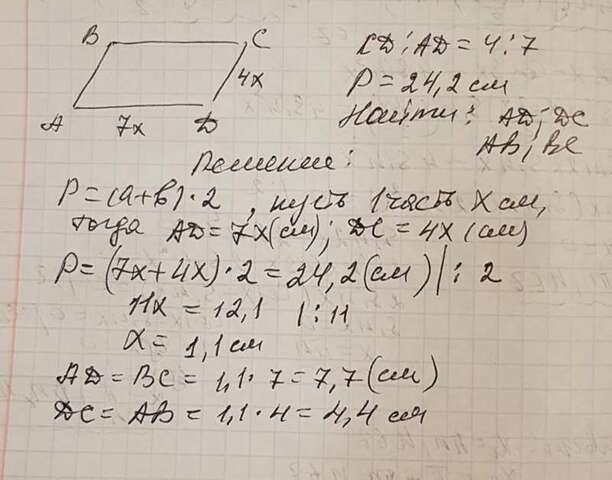 B C
4x
A 7x D
CD : AD = 4 : 7
P = 24,2 см
Найти: AD; DC
AB; BC
Решение:
P = (a+b)·2, пусть 1 часть x см,
тогда AD = 7x (см); DC = 4x (см)
P = (7x + 4x)·2 = 24,2 (см) | : 2
11x = 12,1 | : 11
x = 1,1 см
AD = BC = 1,1 · 7 = 7,7 (см)
DC = AB = 1,1 · 4 = 4,4 см